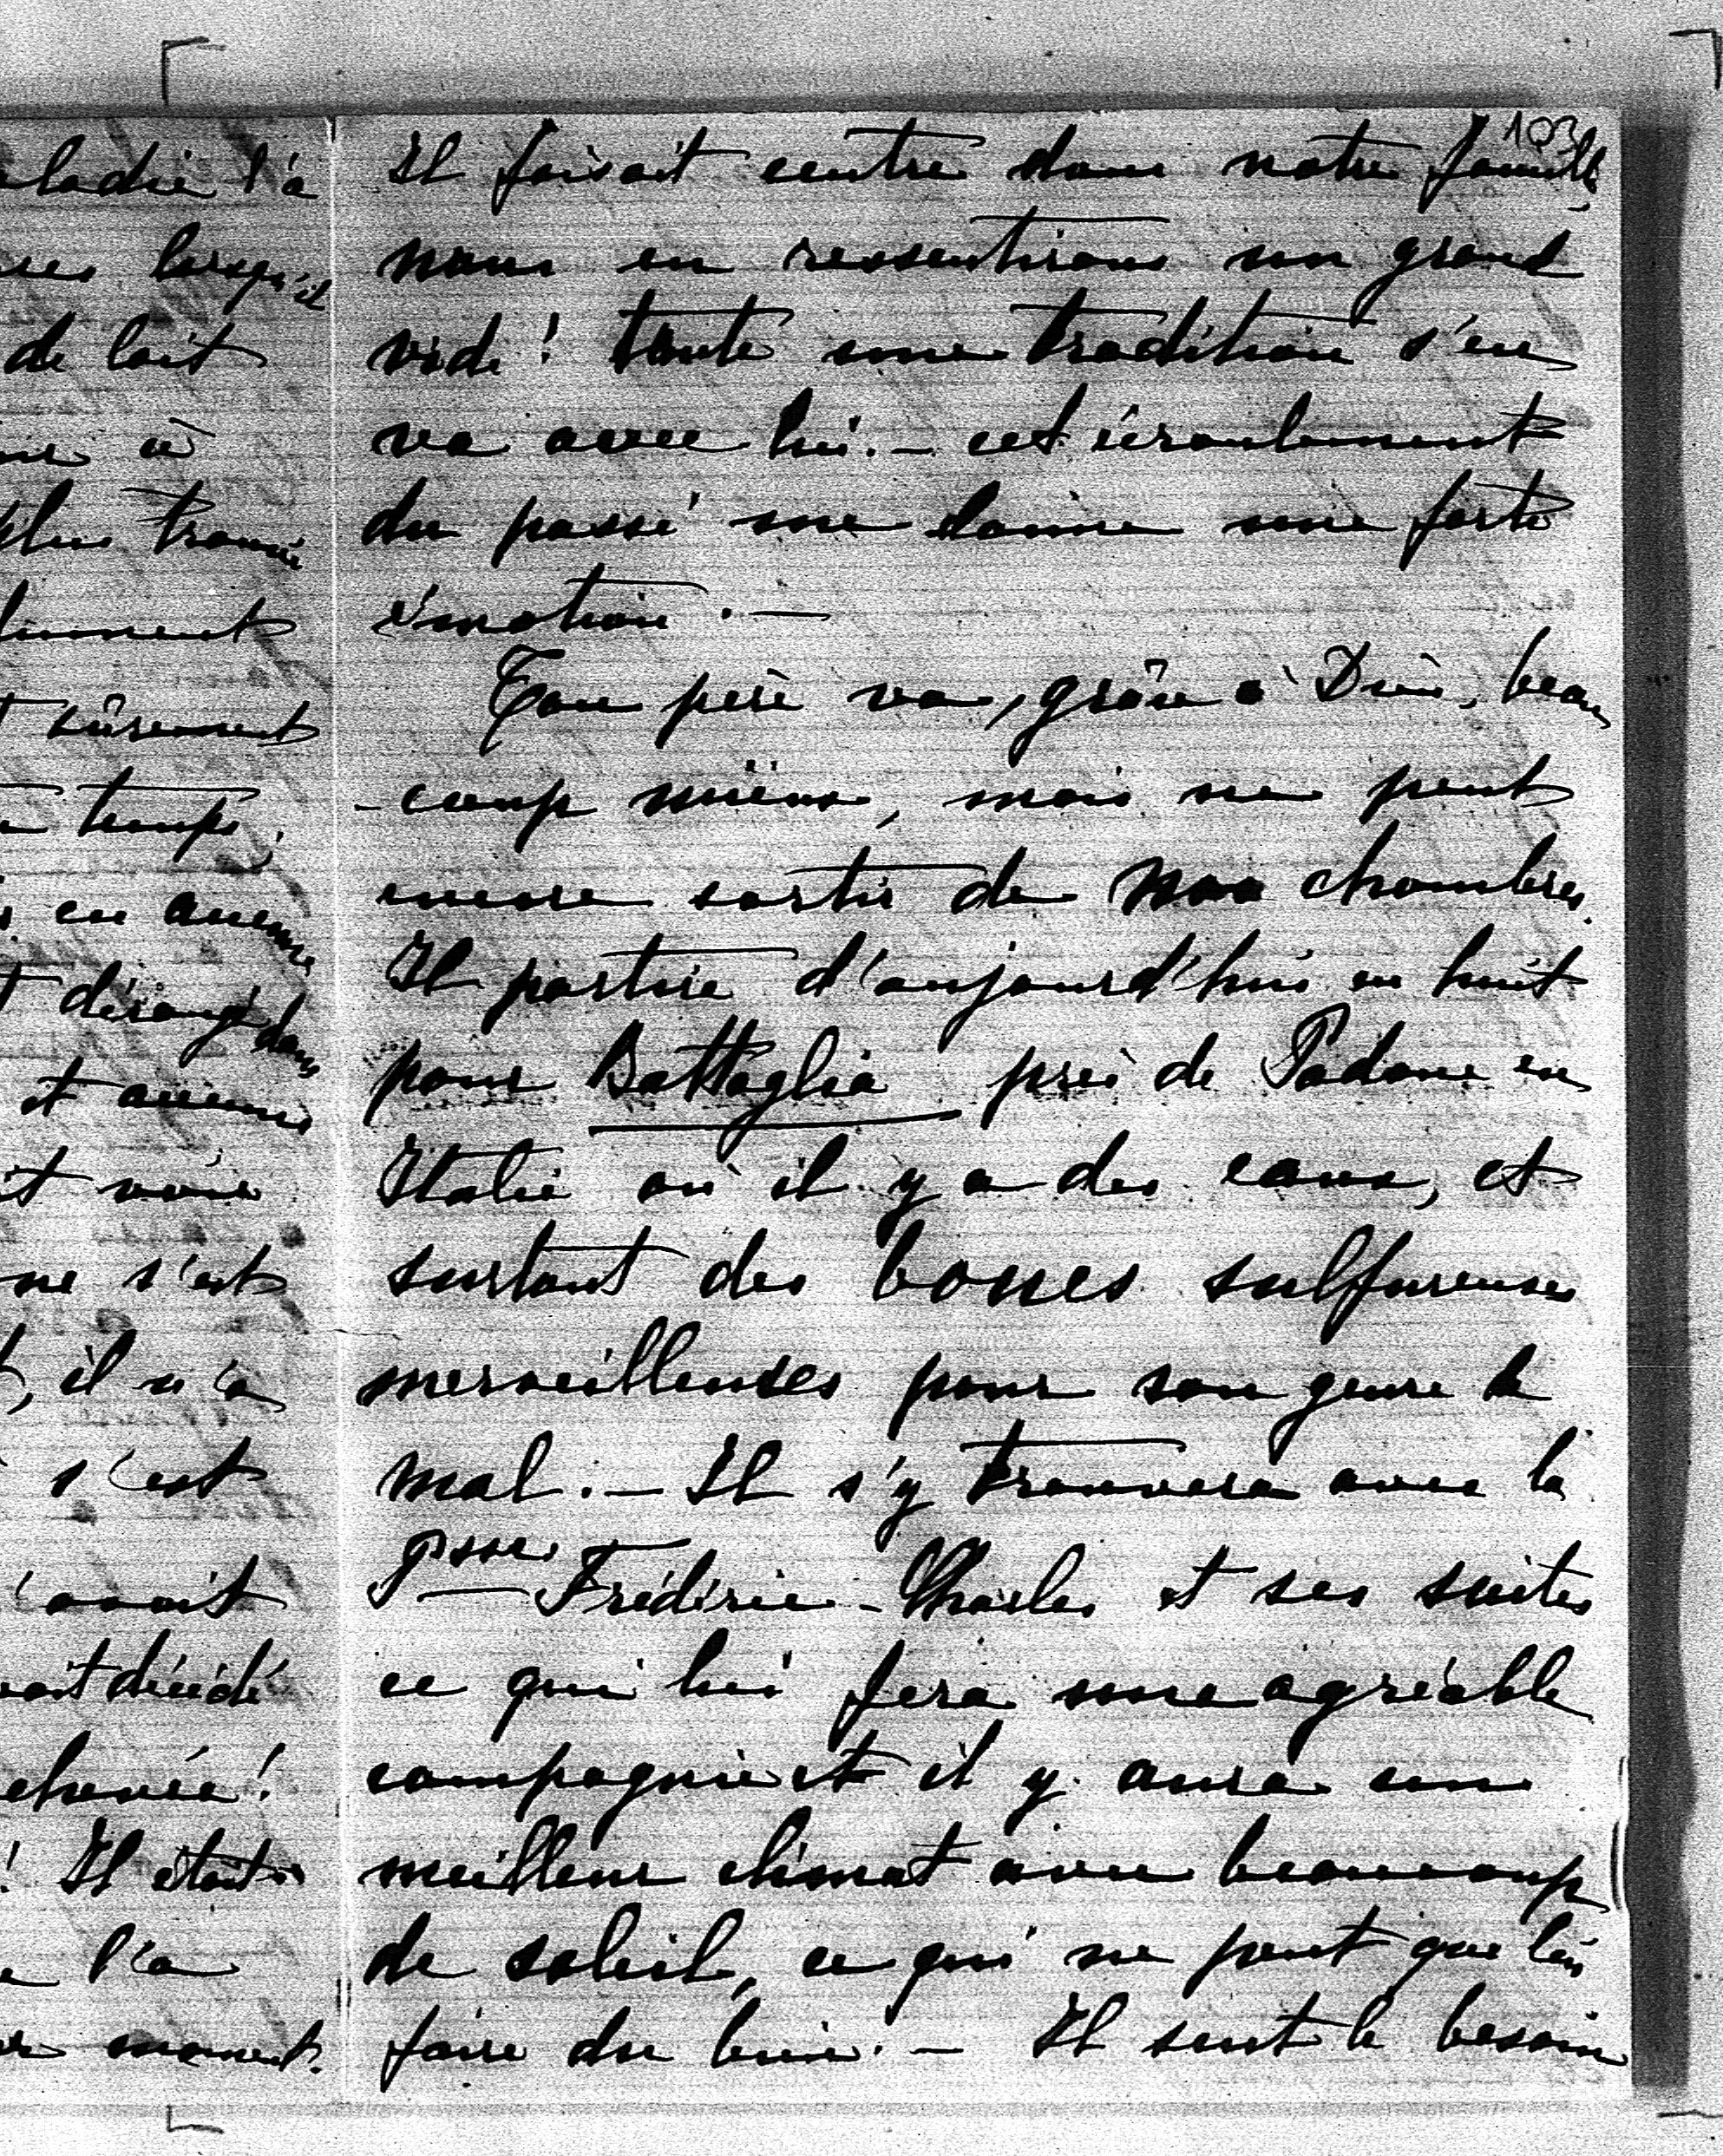 103
Il faisait centre dans notre famille,
nous en ressentirons un grand
vide! toute une tradition s'en
va avec lui. — cet écroulement
du passé me donne une forte
émotion. —
Ton père va, grâce à Dieu, beau
-coup mieux, mais ne peut
encore sortir de nos chambres.
Il partira d'aujourd'hui en huit
pour Battaglia près de Padoue en
Italie où il y a des eaux, et
surtout des boues sulfureuses
merveilleuses pour son genre de
mal. — Il s'y trouvera avec la
Psse Frédéric-Charles et ses suites
ce qui lui fera une agréable
compagnie et il y aura un
meilleur climat avec beaucoup
de soleil, ce qui ne peut que lui
faire du bien. — Il sent le besoin
ladie l'a
lorsqu'il
de lait
à
plus trouvé
sûrement
temps,
en aucune
dérangé dans
et aucune
voix
ne s'est
, il n'a
s'est
avait
décidé
! Il était
l'a
moment.